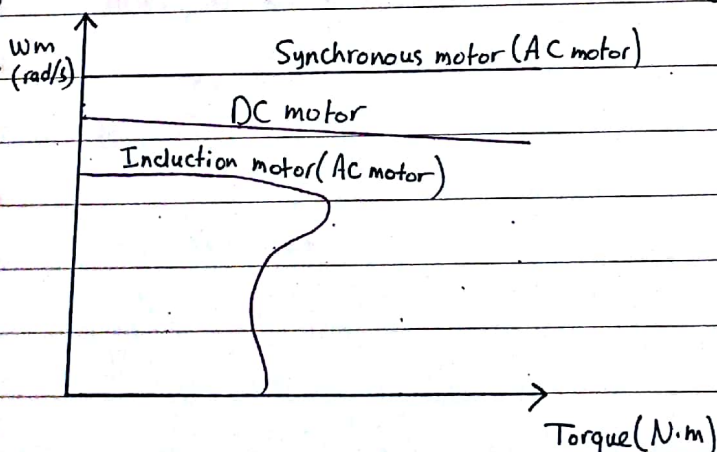 Wm
(rad/s)
Synchronous motor (AC motor)
DC motor
Induction motor (AC motor)
Torque (N.m)